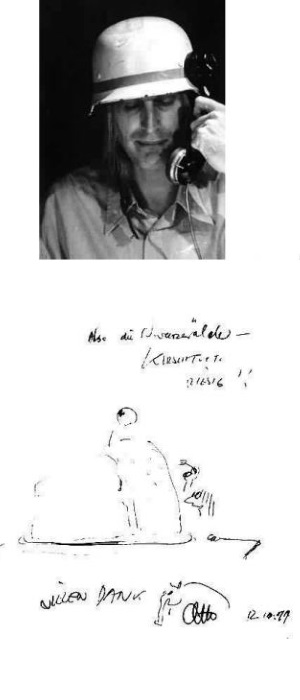 Also die Schwarzwälder –
Kirschtorte
riesig !!
VIELEN DANK
Otto 12.10.99